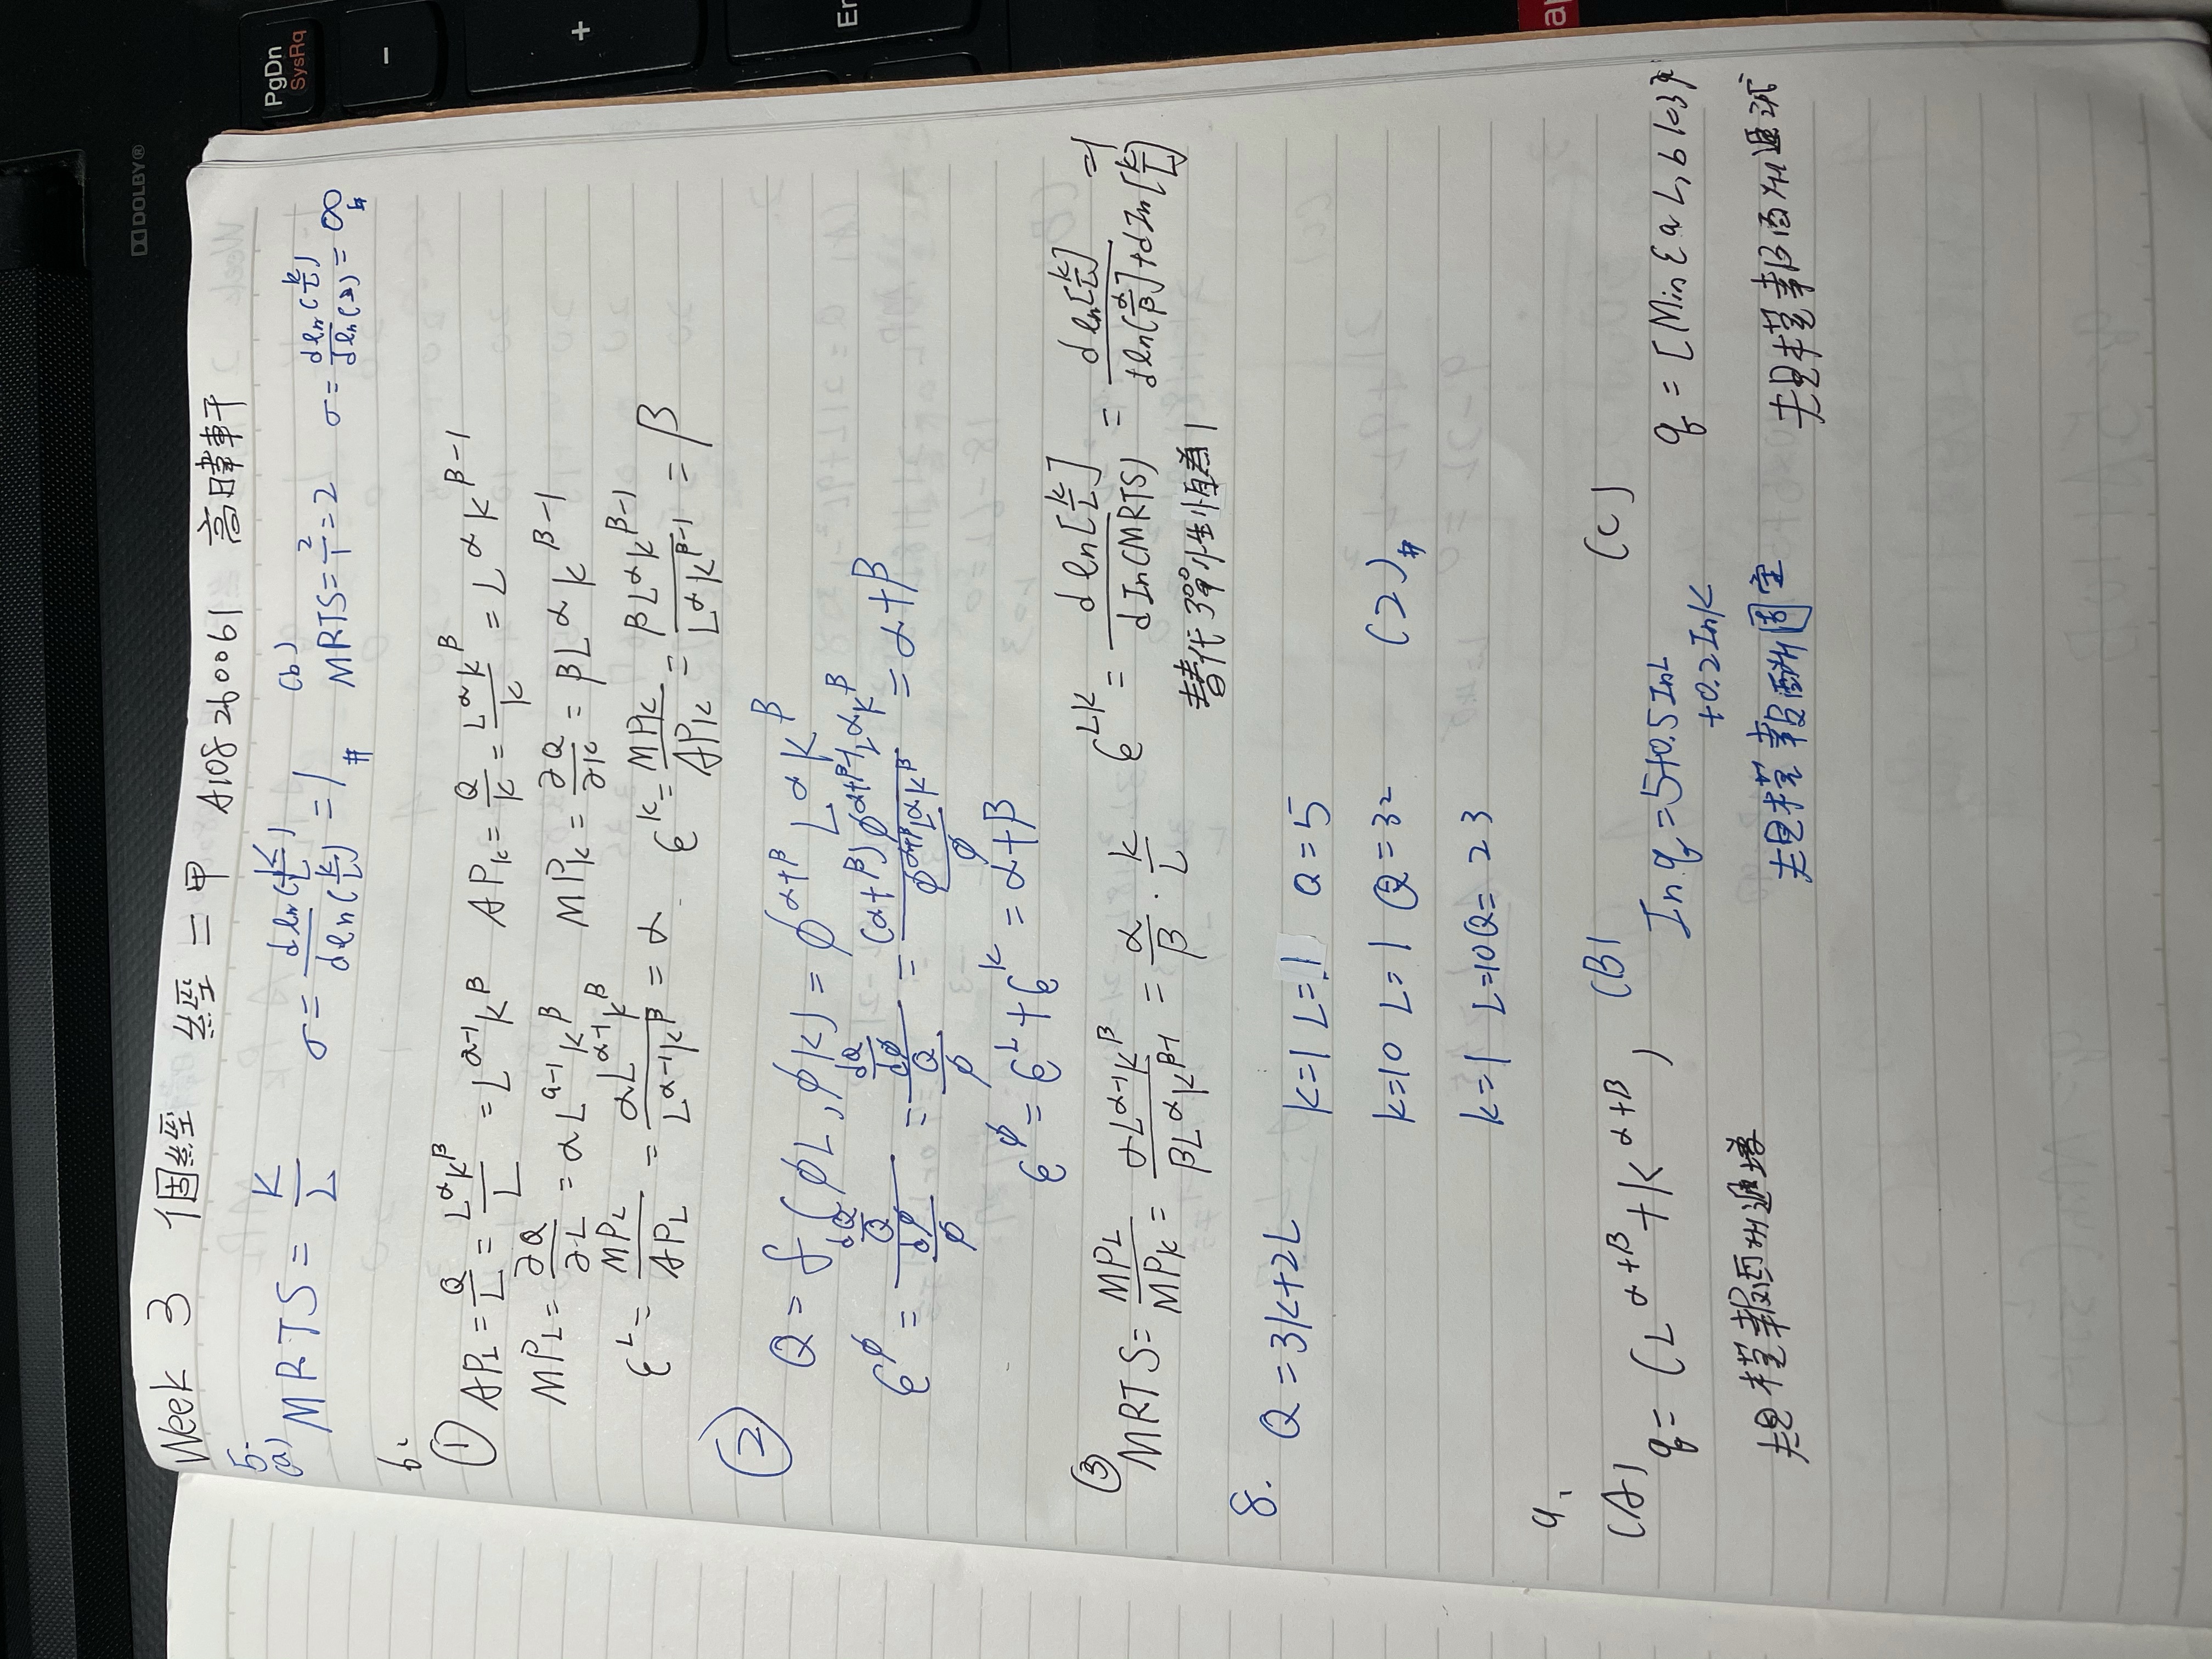 DOLBY®
PgDn
SysRq
Week 3 個經 經二甲 A108260061 高暐軒
5.
(a) MRTS = K/L σ = d ln(K/L) / d ln(K/L) = 1 #
(b) MRTS = 2/1 = 2 σ = d ln(K/L) / d ln(2) = ∞ #
6.
① APL = Q/L = L^α K^β / L = L^(α-1) K^β APK = Q/K = L^α K^β / K = L^α K^(β-1)
MPL = ∂Q/∂L = αL^(α-1) K^β MPK = ∂Q/∂K = βL^α K^(β-1)
ϵ^L = MPL/APL = αL^(α-1)K^β / L^(α-1)K^β = α. ϵ^K = MPK/APK = βL^αK^(β-1) / L^αK^(β-1) = β
②
Q = f(ϕL, ϕK) = ϕ^(α+β) L^α K^β
ϵ^ϕ = (dQ/Q) / (dϕ/ϕ) = (dQ/dϕ) / (Q/ϕ) = (α+β)ϕ^(α+β-1)L^αK^β / (ϕ^(α+β)L^αK^β / ϕ) = α+β
ϵ^ϕ = ϵ^L + ϵ^K = α+β
③ MRTS = MPL/MPK = αL^(α-1)K^β / βL^αK^(β-1) = α/β · K/L ϵ^LK = d ln[K/L] / d ln(MRTS) = d ln[K/L] / (d ln(α/β] + d ln[K/L]) = 1
替代彈性恒為1
8. Q = 3K+2L
K=1 L=1 Q=5
K=10 L=1 Q=32 (2)#
K=1 L=10 Q=23
9.
(A) q = (L^(α+β) + K^(α+β))
規模報酬遞增
(B)
In q = 5+0.5InL
+0.2InK
規模報酬固定
(C)
q = [Min{aL, bK}]
規模報酬遞減